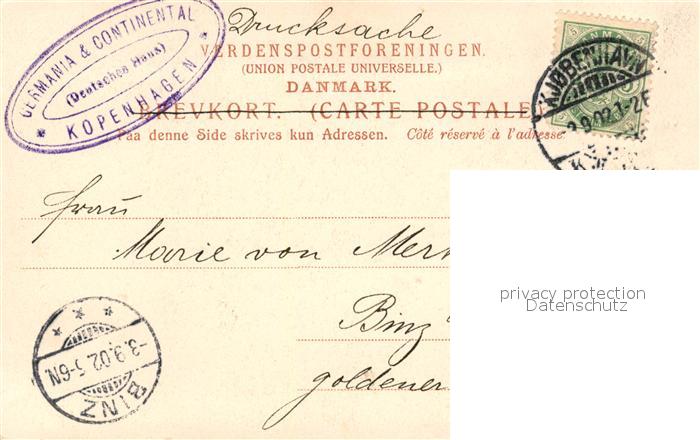 Drucksache
GERMANIA & CONTINENTAL
(Deutsches Haus)
KOPENHAGEN
VERDENSPOSTFORENINGEN.
(UNION POSTALE UNIVERSELLE.)
DANMARK.
BREVKORT. (CARTE POSTALE)
Paa denne Side skrives kun Adressen. Côté réservé à l'adresse
5 5
DANMARK
KJØBENHAVN
2.9.02.
K.
Frau
Marie von Mer
Binz
goldener
privacy protection
Datenschutz
-3.9.02.5-6N
BINZ